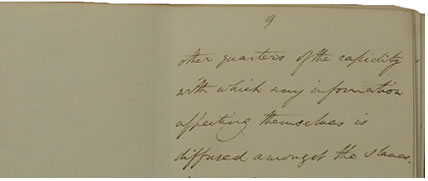 9
other quarters of the rapidity
with which any information
affecting themselves is
diffused amongst the slaves.